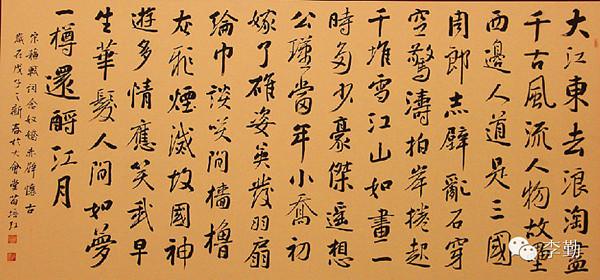 大江東去浪淘盡
千古風流人物故壘
西邊人道是三國
周郎赤壁亂石穿
空驚濤拍岸捲起
千堆雪江山如畫一
時多少豪傑遙想
公瑾當年小喬初
嫁了雄姿英發羽扇
綸巾談笑間檣櫓
灰飛煙滅故國神
遊多情應笑我早
生華髮人間如夢
一樽還酹江月
宋蘇軾詞念奴嬌赤壁懷古
歲在戊子之新春於大會堂苗培红
李勤